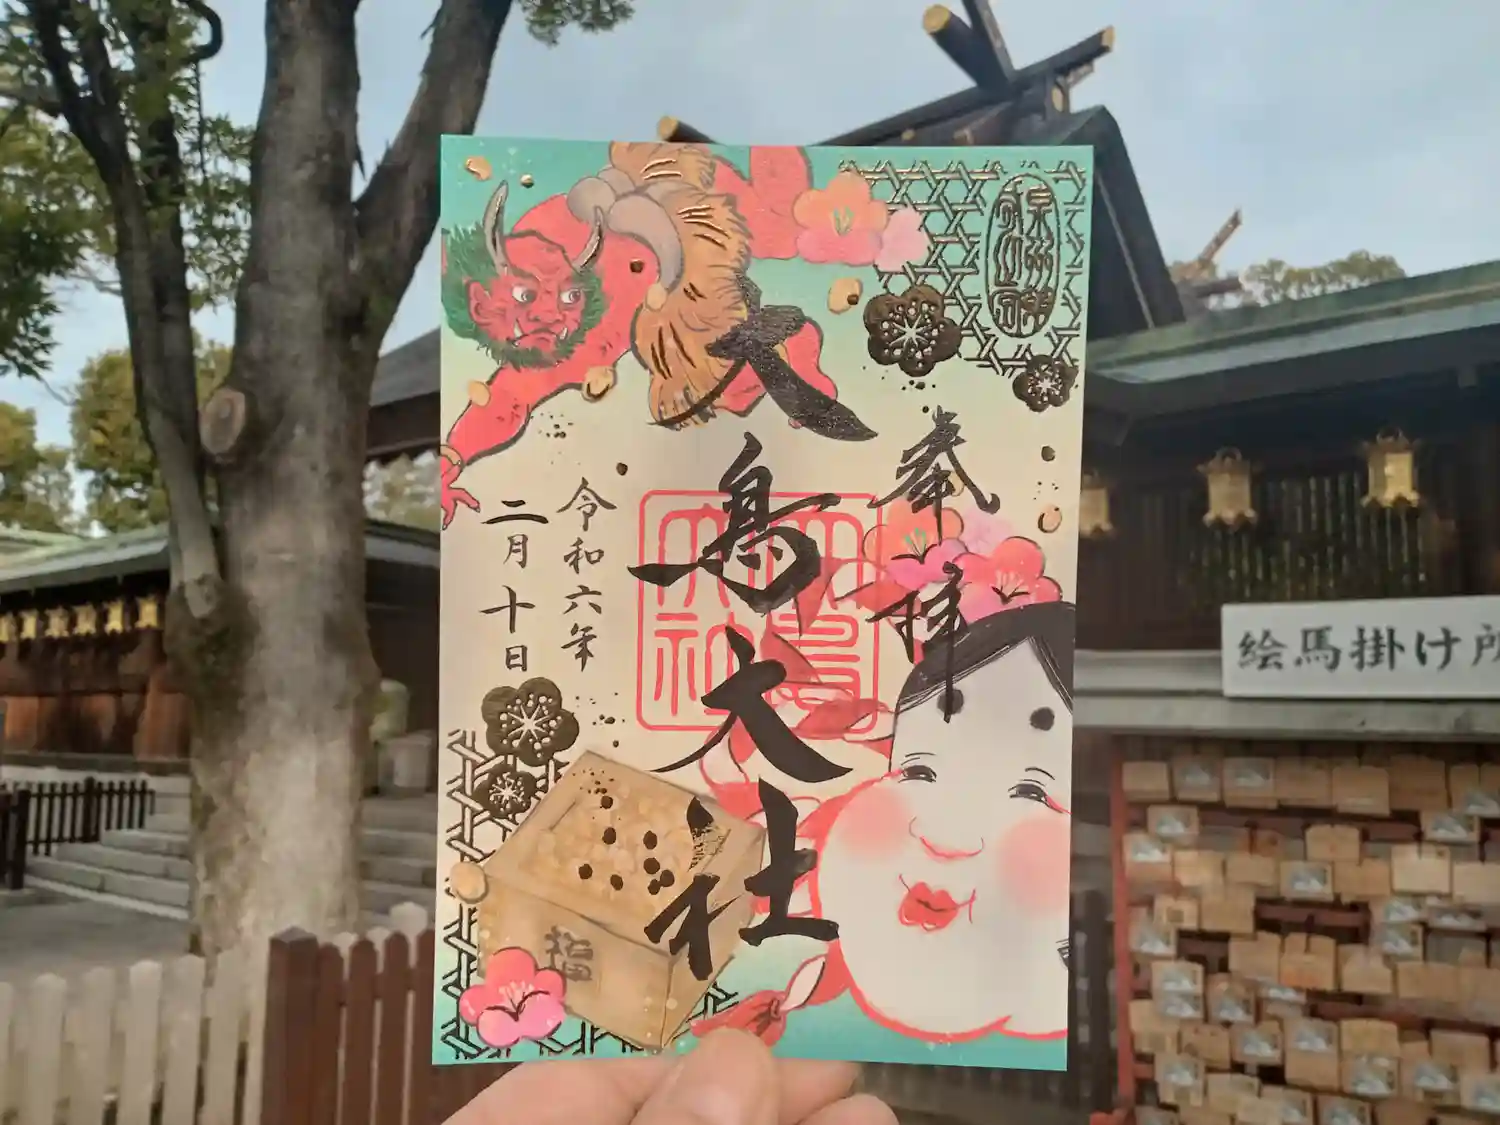 奉拝
大鳥大社
令和六年
二月十日
大鳥大社
福
絵馬掛け所